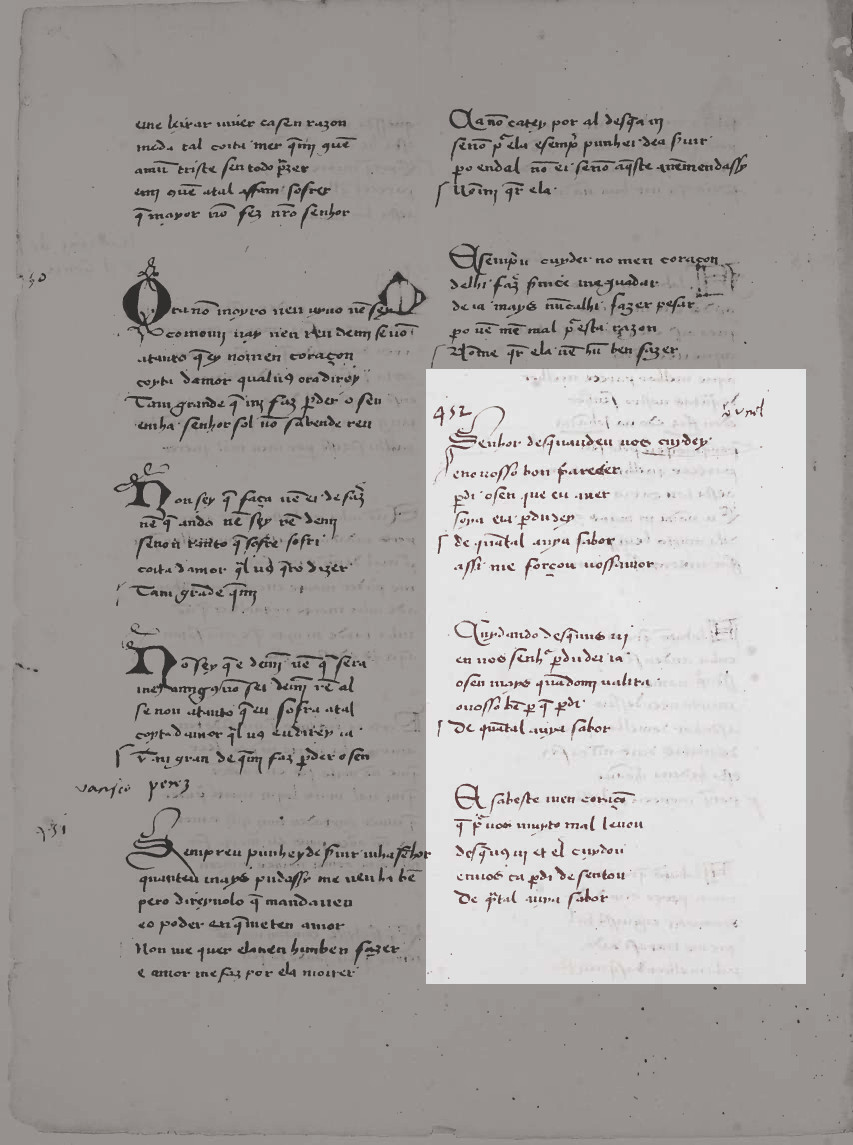 eme leixar viver ca sen razon
meda tal coita mer q̄ mi
amĩ triste sen todo p̃zer
emi atal affam soffrer
q̄ mayor nō fez nr̃o senhor
Ora nō moyro nen vyvo nē sey
comomi vay nen ren demi se nō
atanto q̄ ey nomen coraçon
coyta damor qual vꝯ ora direy
Tam grande q̄ mi faz ꝑder o sen
emha senhor sol nō sabende ren
Non sey q̄ faça nē ei de faz̃
nē q̄ ando nē sey rē demi
se nō tanto q̄ sofre sofri
coita damor q̄l vꝯ q̄ro dizer
Tam grāde q̄ mi
Nō sey q̄ e demi nē q̄ sera
meꝯ amigꝯ nō sei demi rē al
se non atanto q̄ eu sofra atal
coyta damor q̄l vꝯ eu direy ia
Tam gran de q̄ mi faz ꝑder o sen
vasco perez
431
Sempreu punhey de s̃vir mha senhor
quanteu mays pudassy me venha bē
pero direyvolo q̄ mandaven
eo poder en q̄ meten amor
Non me quer elanen hun ben fazer
e amor me faz por ela morrer
Ca nō catey por al desq̄ a vi
se nō p̃ ela esemp̃ punhei dea s̃vir
ꝑo endal nō ei se nō aq̄ste
Nō mi q̄r ela
E sempreu cuydei no meu coraçon
delhi faz̃
de ia mays nūcalhi fazer pesar
ꝑo vē mē mal p̃ esta razon
Nōme q̄r ela nē hū ben fazer
432
Senhor desquandeu vos cuydey
eno vosso bon parecer
ꝑdi o sen que eu aver
soya eu ꝑdudey
de quātal avya sabor
assi me forçou vossamor
Cuydando desq̄ vus vi
en vos senhor ꝑdudei ia
o sen mays quādomi valrra
o vosso bē ꝑ q̄ ꝑdi
De quātal avya sabor
E sabeste meu coraçō
q̄ p̃ vos muyto mal levou
desq̄ vꝯ vi et el cuydou
en vos ca ꝑdi desentou
De q̄tal avya sabor